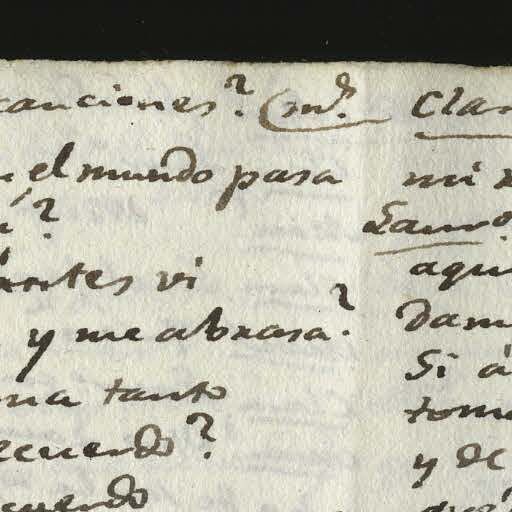 canciones? (m.º
el mundo pasa
?
antes vi
y me abrasa?
tanto
ecuerdo?
cuerdo
Cla
mi
Lauro
aqui
dam
Si á
toma
y de